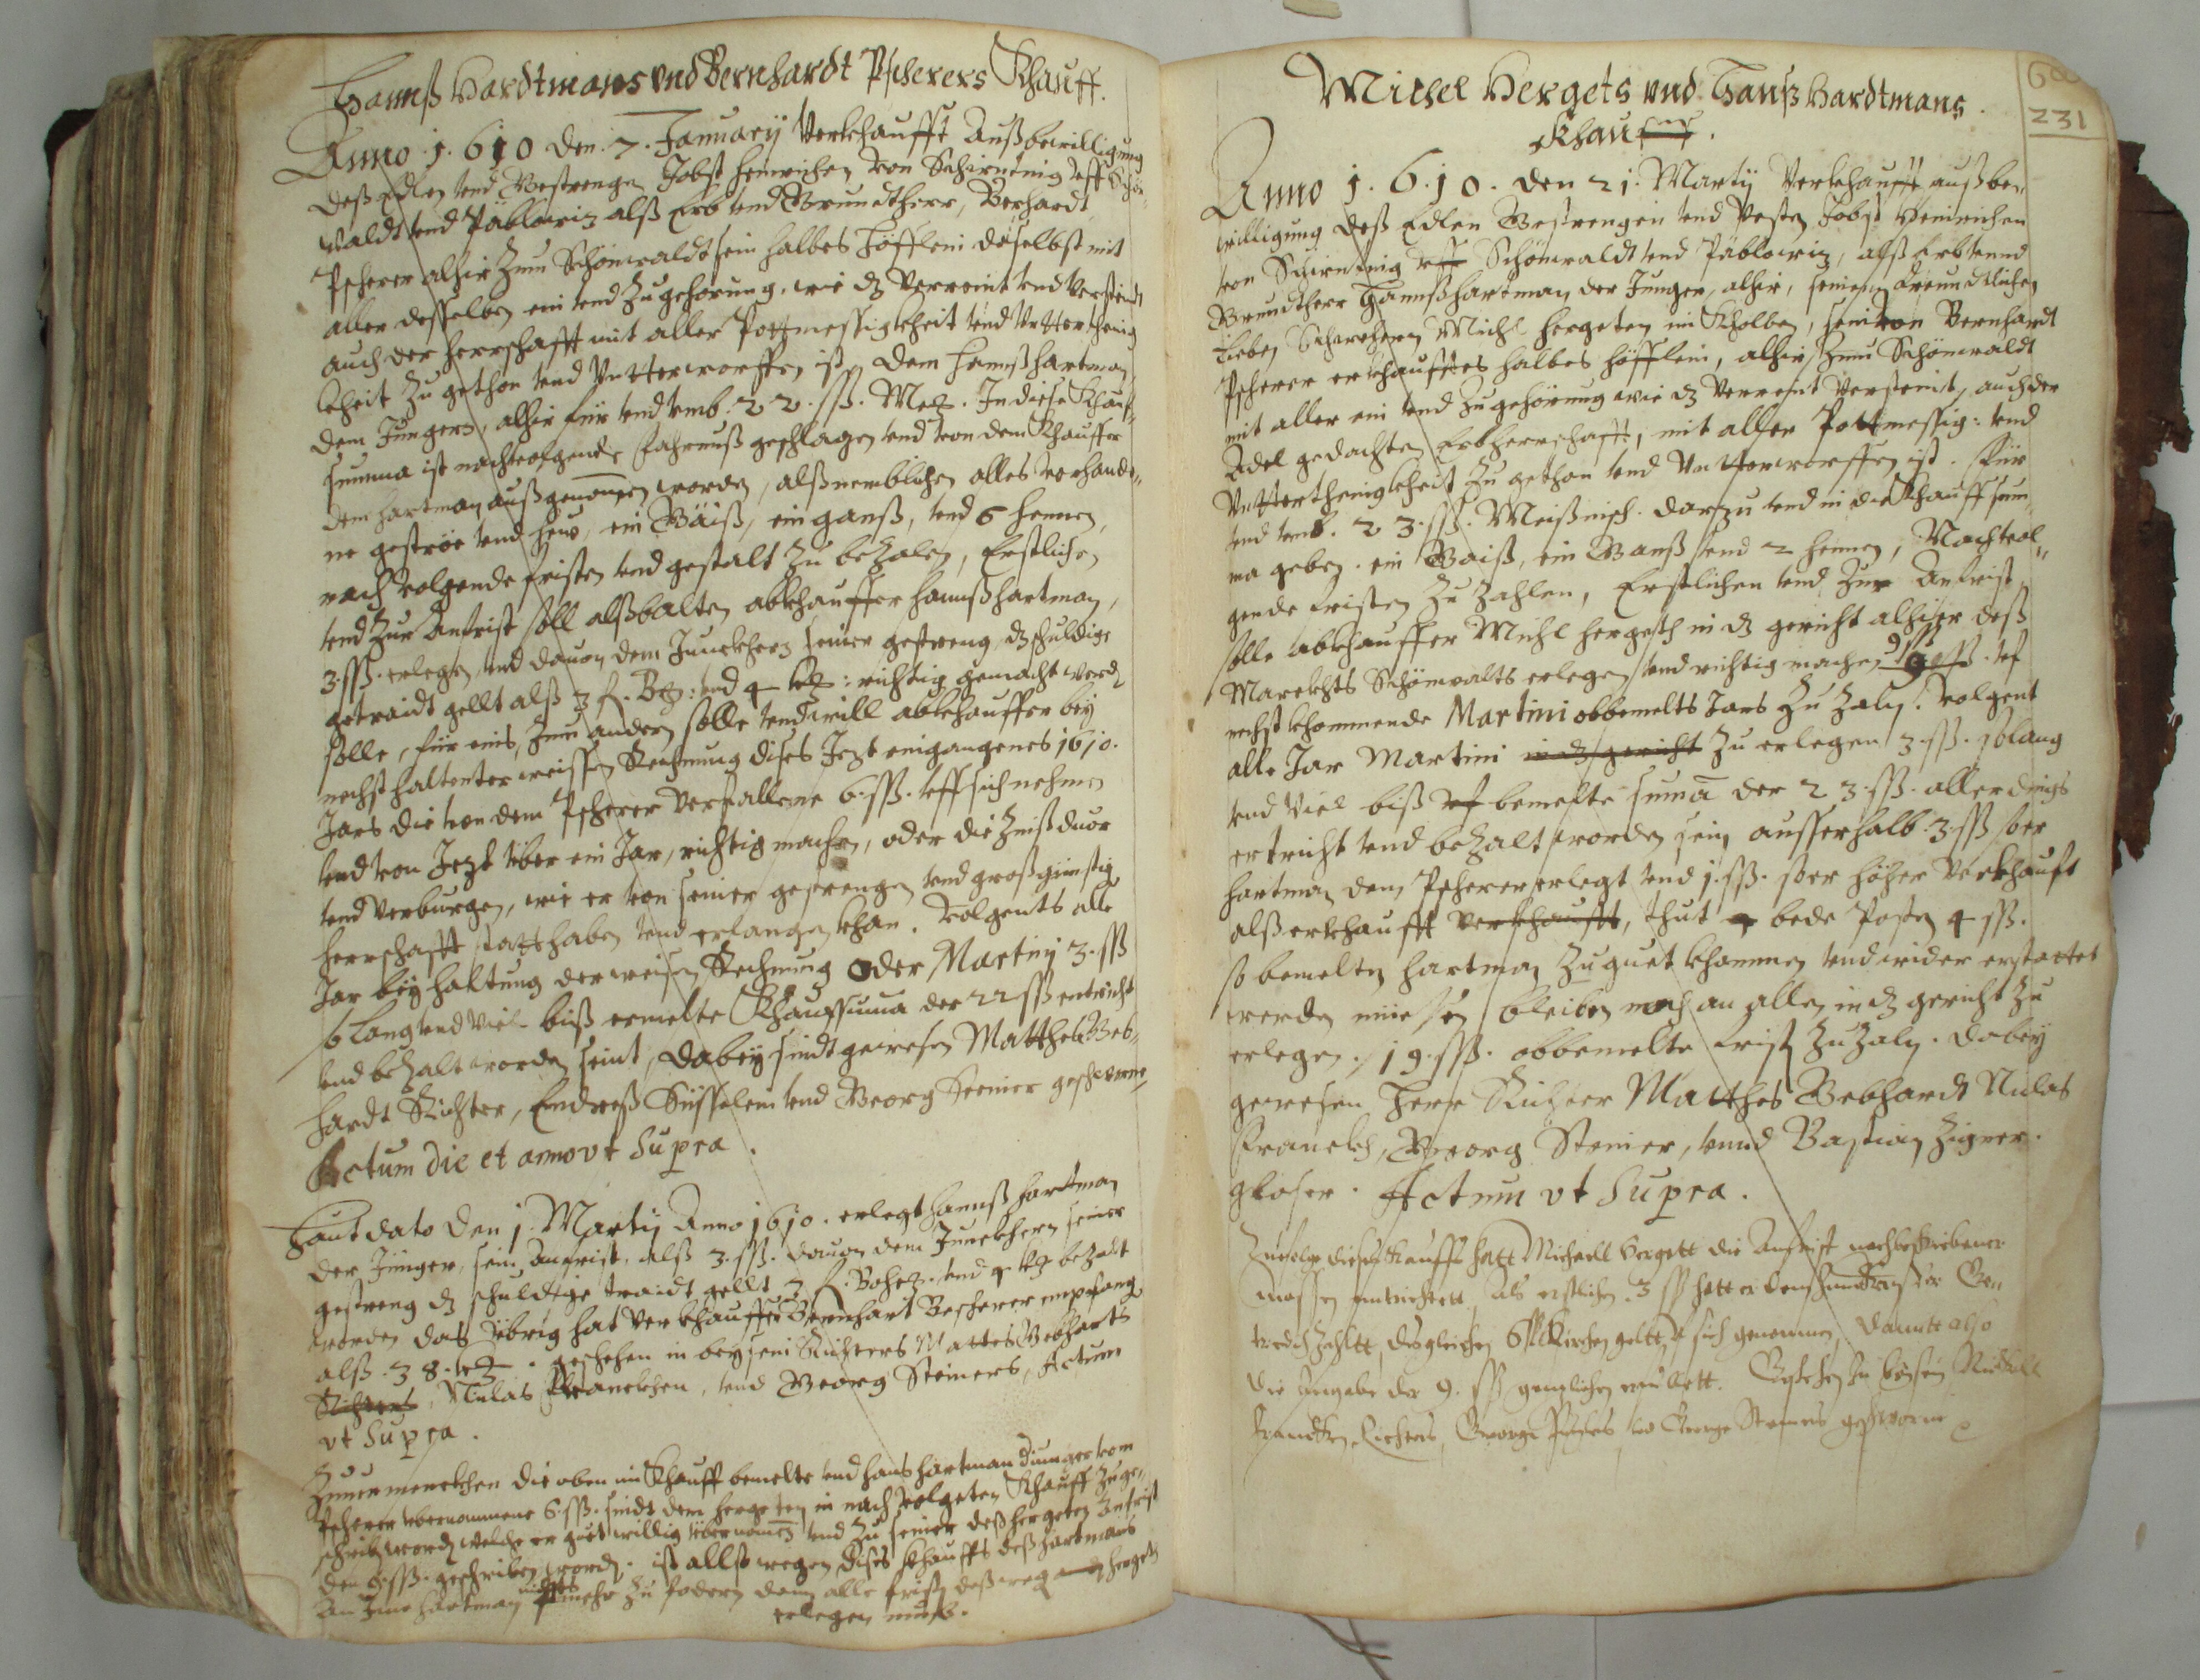 Hannß Hardtmans vnd Bernhardt Pscherers Khauff.
Anno .1.610 den .7. January Verkhaufft Auß bewilligung
deß Edlen vnd Gestrengen Jobst Heinrichen von Schirnting vff Schön-
waldt vnd Päblowiz alß Erb vnd Grundtherr, Berhardt
Pscherer alhir Zum Schönwaldt sein halbes Höfflein daselbst mit
aller desselben ein vnd Zugehörung, wie dz Verreint vnd Versteindt
auch der herrschafft mit aller Pottmessigkheit vnd Vntterthenig
kheit Zugethon vnd Vntterworffen ist, dem Hannß Hartman
dem Jungern, alhir für vnd vmb .22. ßß. Meiß. In diese Khauff-
summa ist nachvolgende fahrnuß geschlagen vnd von dem Khauffer
dem Hartman außgenommen worden, alß nemblichen alles vorhande-
ne gestroe vnd heu, ein Gaiß, ein ganß, vnd 6 hennen,
nach volgende fristen vnd gestalt Zu beZalen, Erstlichen
vnd Zur Anfrist soll alßbalten abkhauffer Hannß Hartman,
3. ßß. erlegen, vnd dauon dem Junckhern seiner gestreng dz schuldige
getraidt gellt alß 3 f. Beh: vnd 4 kr: richtig gemacht werden
solle, für eins, Zum andern solle vnd will abkhauffer bey
nechst haltenter weissen Rechnung dises Jezt eingangenes 1610.
Jars die von dem Pscherer verfallene 6. ßß. vff sich nehmen
vnd von Jezt über ein Jar, richtig machen, oder die Zinß dauor
vnd Verburgen, wie er von seiner gestrengen vnd großgünstig
herrschafft statt haben vnd erlangen khan. Volgents alle
Jar bey haltung der weisen Rechnung oder Martiny 3. ßß
so lang vnd Viel biß ermelte Khauffsuma der 22 ßß entricht
vnd beZalt worden seint, dabey sindt gewesen Matthes Geb-
hardt Richter, Endreß vnd Georg Steiner geschworne
Actum die et anno vt Supra.
Haut dato den 1. Marty Anno 1610. erlegt Hannß Hartman
der Jünger, sein Anfrist, alß 3. ßß. dauon dem Junckhern seiner
gestreng dz schuldige traidt gellt 3 f. Behe. vnd 4 kr beZalt
worden das Übrig hat Verkhauffer Bernhart Bscherer empfang
alß .38. kr. geschehen in beysein Richters Mattes Gebharts
Richters, Niclas Franckhen, vnd Georg Steiners, Actum
vt Supra.
Zumermerckhen die oben im Khauff bemelte vnd Hans Hartman Jünger vom
Pscherer vbernommene 6. ßß. sindt dem Hergeten in nach volgeten Khauff Zuge-
schrieben worden welche er guet willig übernommen vnd Zu seiner deß Hergeten Anfrist
den 9. ßß. geschriben worden. ist allso wegen dises Khauffs deß Hartmans
an Ime Hartman nichts mehr Zu fodern dann alle frist deßweg Herget
erlegen muß.
60
231
Michel Hergets vnd Hanß Hardtmans.
Khauff.
Anno 1.6.10. den 21. Marty Verkhaufft auß be-
willigung deß Edlen Gestrengen vnd Vesten Jobst Heinrichen
von Schirnting vff Schönwaldt vnd Päblowiz, alß Erb vnnd
Grundtherr Hannß Hartman der Junger, alhir, seinem freundtlichen
Lieben Schwehern Michl Hergeten im Kholben, sein von Bernhardt
Pscherer erkhaufftes halbes höfflein, alhir Zum Schönwaldt
mit aller ein vnd Zugehörung wie dz Verreint Versteint, auch der
Adel gedachten Erbherrschafft, mit aller Pottmessig: vnd
Vntterthenigkheit Zu gethon vnd Vntterworffen ist. für
vnd vmb. 23. ßß. Meißnisch. darzu vnd in die Khauff sum-
ma geben. ein Gaiß, ein Ganß vnd 2 hennen, Nachvol-
gende fristen Zu Zahlen, Erstlichen vnd Zur Anfrist
solle abkhauffer Michl Herget in dz gericht alhier deß
Marckhts Schönwalts erlegen vnd richtig machen 9 ßß. vf
nechst khommende Martini obbemelts Jars Zu Zaln. Volgent
alle Jar Martini in dz gericht Zu erlegen 3. ßß. solang
vnd Viel biß vf bemelte suma der 23. ßß. allerdings
entricht vnd beZalt worden sein, ausserhalb .3. ßß so er
Hartman dem Pscherer erlegt vnd 1. ßß. so er höher Verkhaufft
alß erkhaufft verkhaufft, thut bede Posten 4 ßß.
so bemelten Hartman Zu guet khommen vnd wider erstattet
werden müessen bleiben noch an allen in dz gericht Zu
erlegen. 19. ßß. obbemelte frist Zu Zaln. dabey
gewesen Herr Richter Matthes Gebhardt Niclas
Franckh, Georg Steiner, vnnd Bastian Zigner.
gloser. Actum vt Supra.
Zuuolge dieses Kauffs hatt Michaell Hergett die Anfrist nachbeschriebener
massen entrichtett, Als erstlichen 3 ßß hatt er dem
Zahltt, desgleichen 6 ß Kirchen geltt vf sich genommen, damitt also
die Angabe der 9. ßß gentzlichen erfüllett. Geschehen in beysein Niclas
Francken Richters, Georg vnd George Steiners geschworne